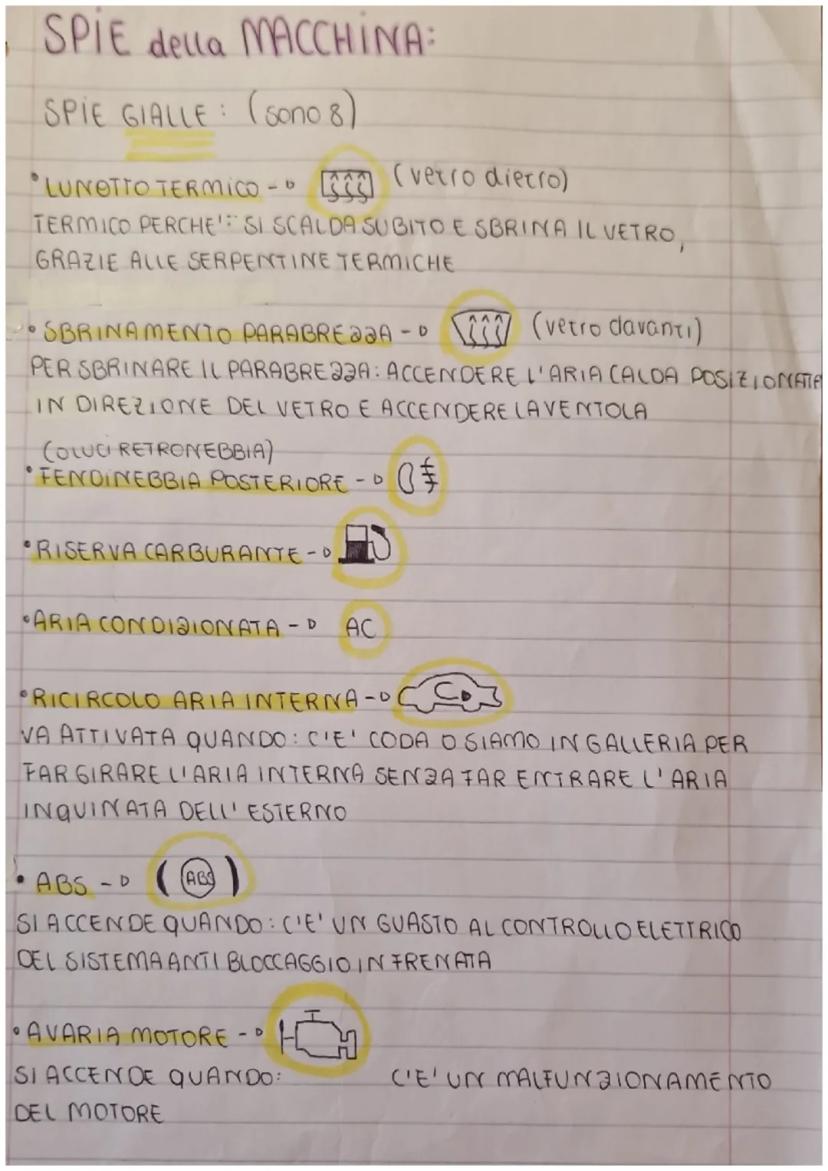 SPIE della MACCHINA:
SPIE GIALLE: (sono 8)
•LUNOTTO TERMICO -▷ (vetro dietro)
TERMICO PERCHE': SI SCALDA SUBITO E SBRINA IL VETRO,
GRAZIE ALLE SERPENTINE TERMICHE
•SBRINAMENTO PARABREZZA -▷ (vetro davanti)
PER SBRINARE IL PARABREZZA: ACCENDERE L'ARIA CALDA POSIZIONATA
IN DIREZIONE DEL VETRO E ACCENDERE LA VENTOLA
(O LUCI RETRONEBBIA)
•FENDINEBBIA POSTERIORE -▷
•RISERVA CARBURANTE -▷
•ARIA CONDIZIONATA -▷ AC
•RICIRCOLO ARIA INTERNA -▷
VA ATTIVATA QUANDO: C'E' CODA O SIAMO IN GALLERIA PER
FAR GIRARE L'ARIA INTERNA SENZA FAR ENTRARE L'ARIA
INQUINATA DELL'ESTERNO
• ABS -▷ (ABS)
SI ACCENDE QUANDO: C'E' UN GUASTO AL CONTROLLO ELETTRICO
DEL SISTEMA ANTI BLOCCAGGIO IN FRENATA
•AVARIA MOTORE -▷
SI ACCENDE QUANDO: C'E' UN MALFUNZIONAMENTO
DEL MOTORE